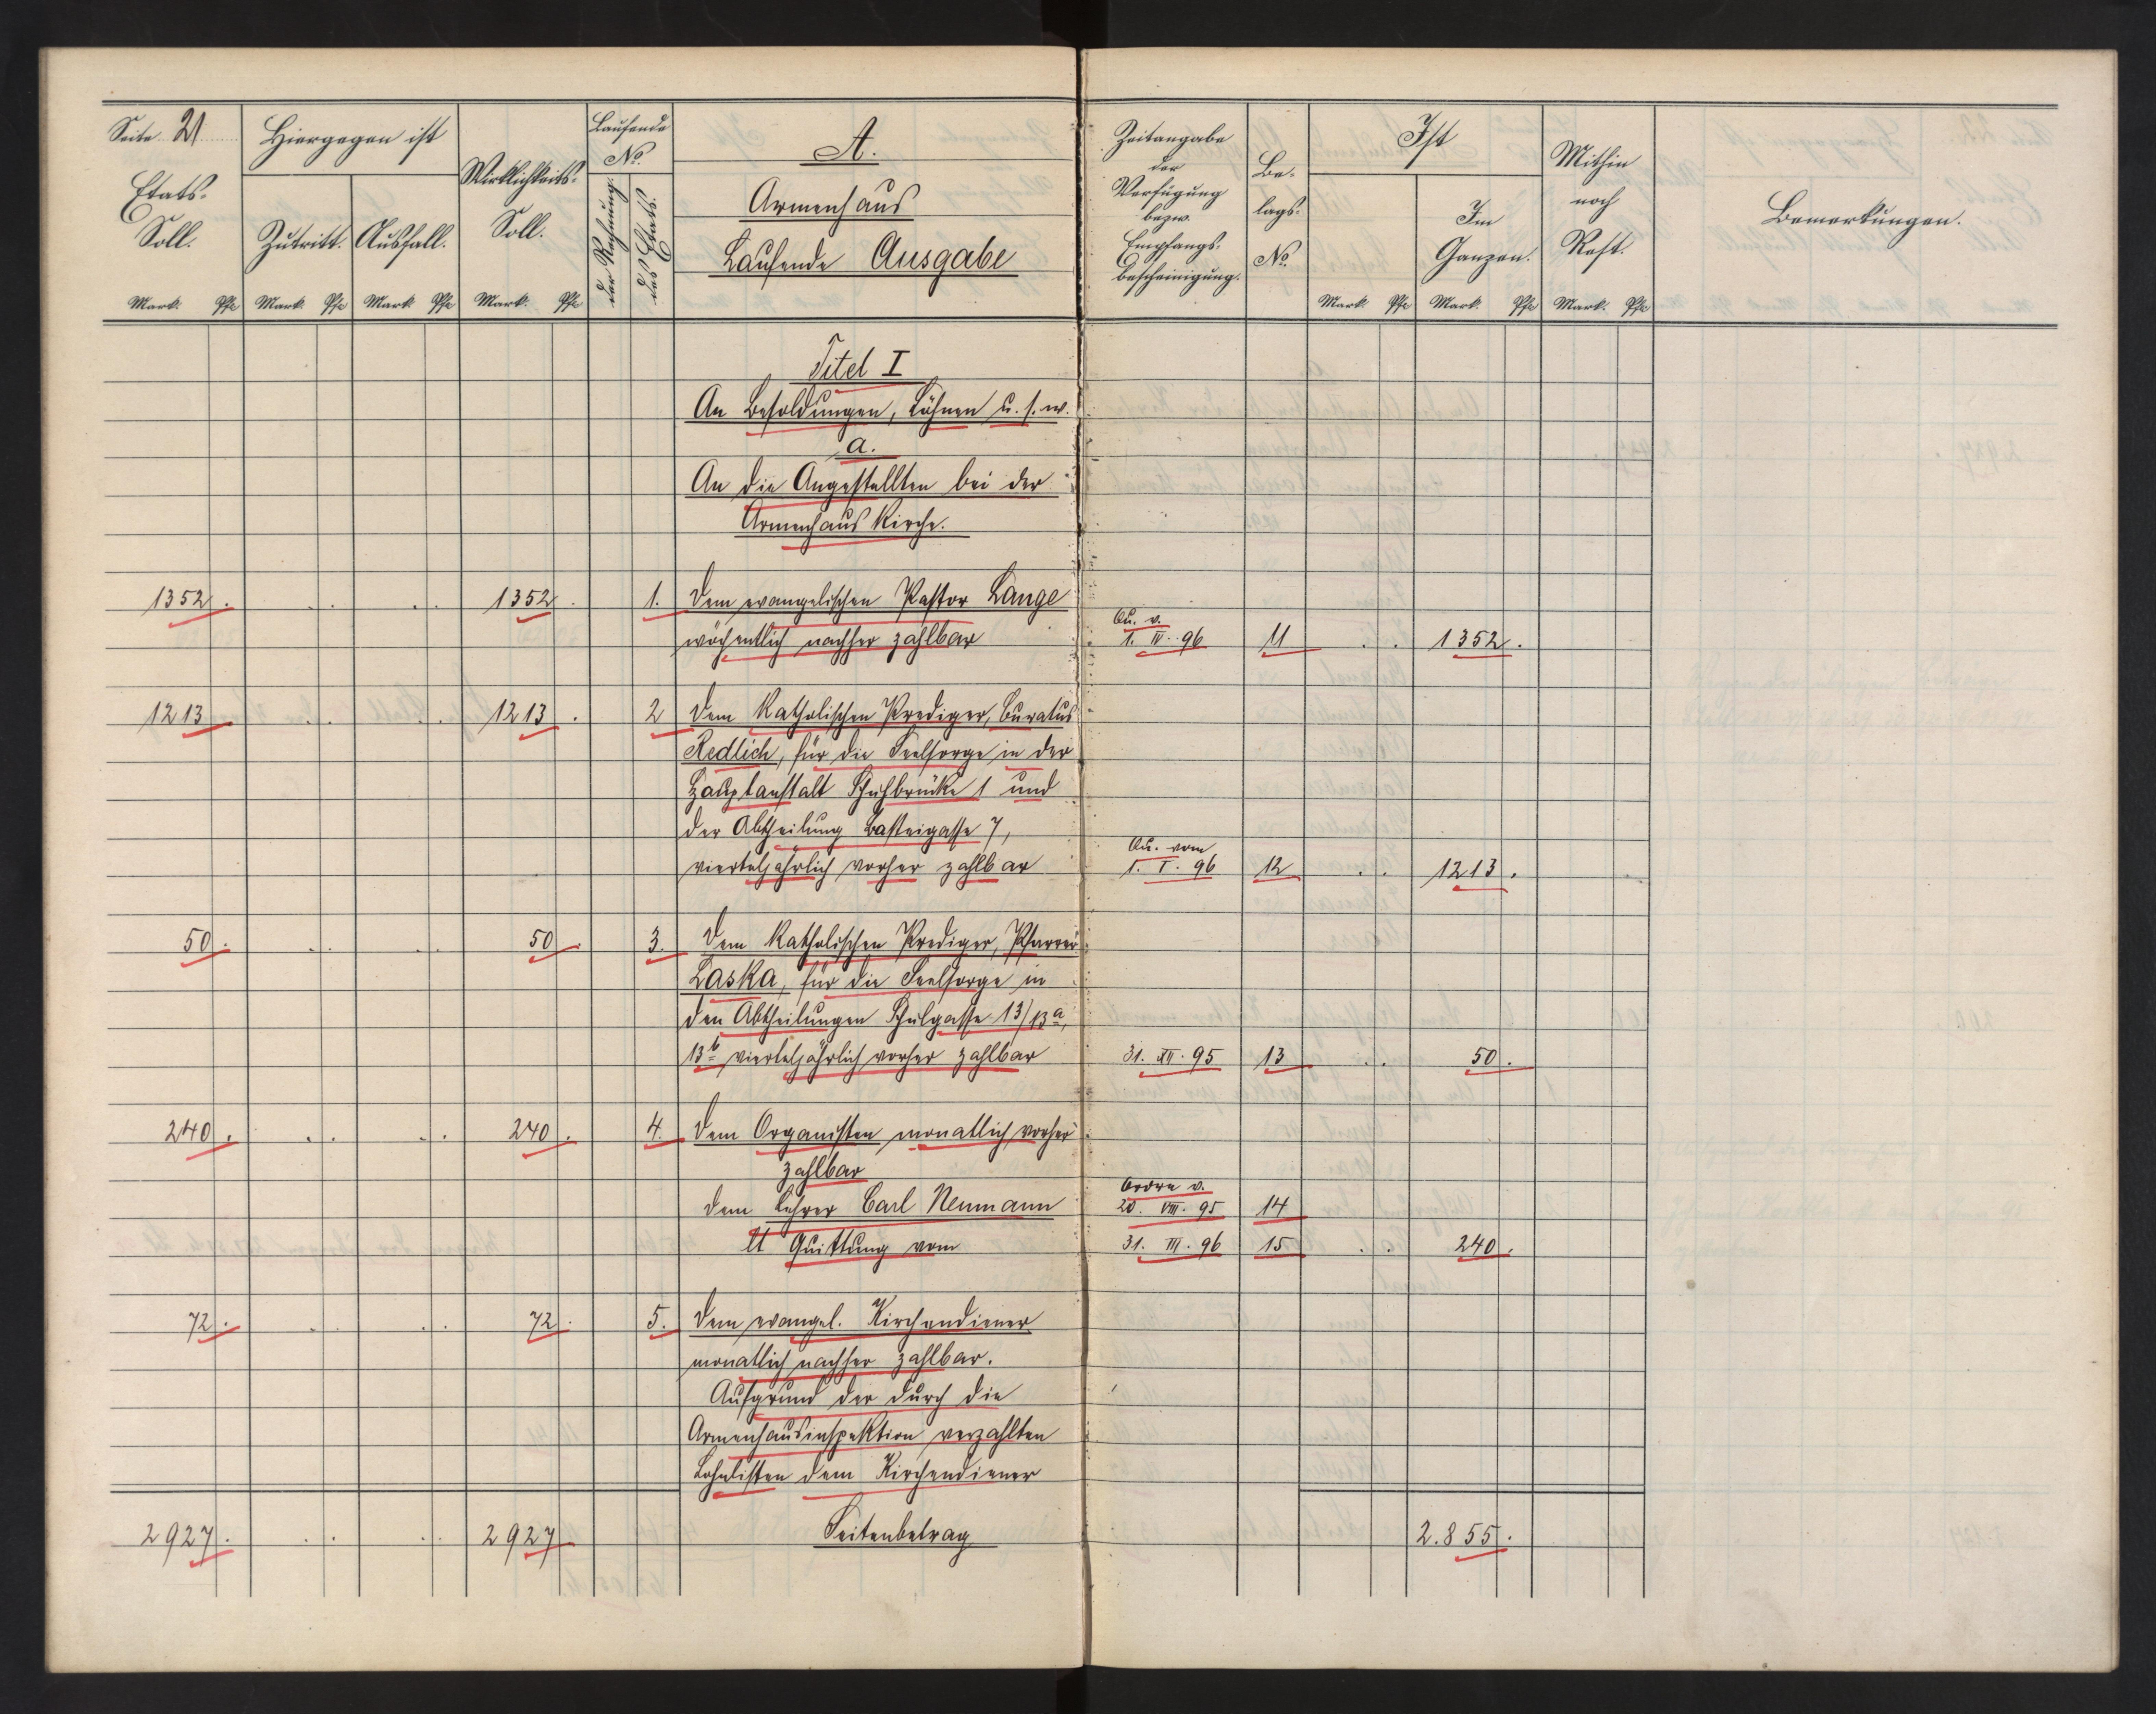 Seite 21
Etats-
Soll.
Mark. Pf.
Hiergegen ist
Zutritt.
Mark. Pf.
Ausfall.
Mark. Pf.
Wirklichkeits-
Soll.
Mark. Pf.
Laufende
No.
der Rechnung.
des Etats.
A.
Armenhaus
Laufende Ausgabe
Zeitangabe
der
Verfügung
bezw.
Empfangs-
bescheinigung.
Be-
lags-
No.
Ist
Mark. Pf.
Im
Ganzen.
Mark. Pf.
Mithin
noch
Rest.
Mark. Pf.
Bemerkungen.
Titel I
An Besoldungen, Löhnen u. s. w.
a.
An die Angestellten bei der
Armenhaus Kirche.
1352 . . . . . 1352 . 1. Dem evangelischen Pastor Lange
wöchentlich nachher zahlbar
Qu. v.
1. IV. 96 11 . . 1352 .
1213 . . . . . 1213 . 2 Dem Katholischen Prediger, Curatus
Redlich, für die Seelsorge in der
Hauptanstalt Schuhbrücke 1 und
der Abtheilung Basteigasse 7,
vierteljährlich vorher zahlbar
Qu. vom
1. I. 96 12 . . 1213 .
50 . . . . . 50 . 3. Dem Katholischen Prediger, Pfarrer
Laska, für die Seelsorge in
den Abtheilungen Schulgasse 13/13a,
13b vierteljährlich vorher zahlbar 31. XII. 95 13 . . 50 .
240 . . . . . 240 . 4. Dem Organisten monatlich vorher
zahlbar
Dem Lehrer Carl Neumann
Ordre v.
20. VIII. 95 14
lt Quittung vom 31. III. 96 15 . . 240 .
72 . . . . . 72 . 5. Dem evangel. Kirchendiener
monatlich nachher zahlbar.
Aufgrund der durch die
Armenhausinspektion verzahlten
Lohnlisten dem Kirchendiener
2927 . . . . . 2927 Seitenbetrag 2.855 .